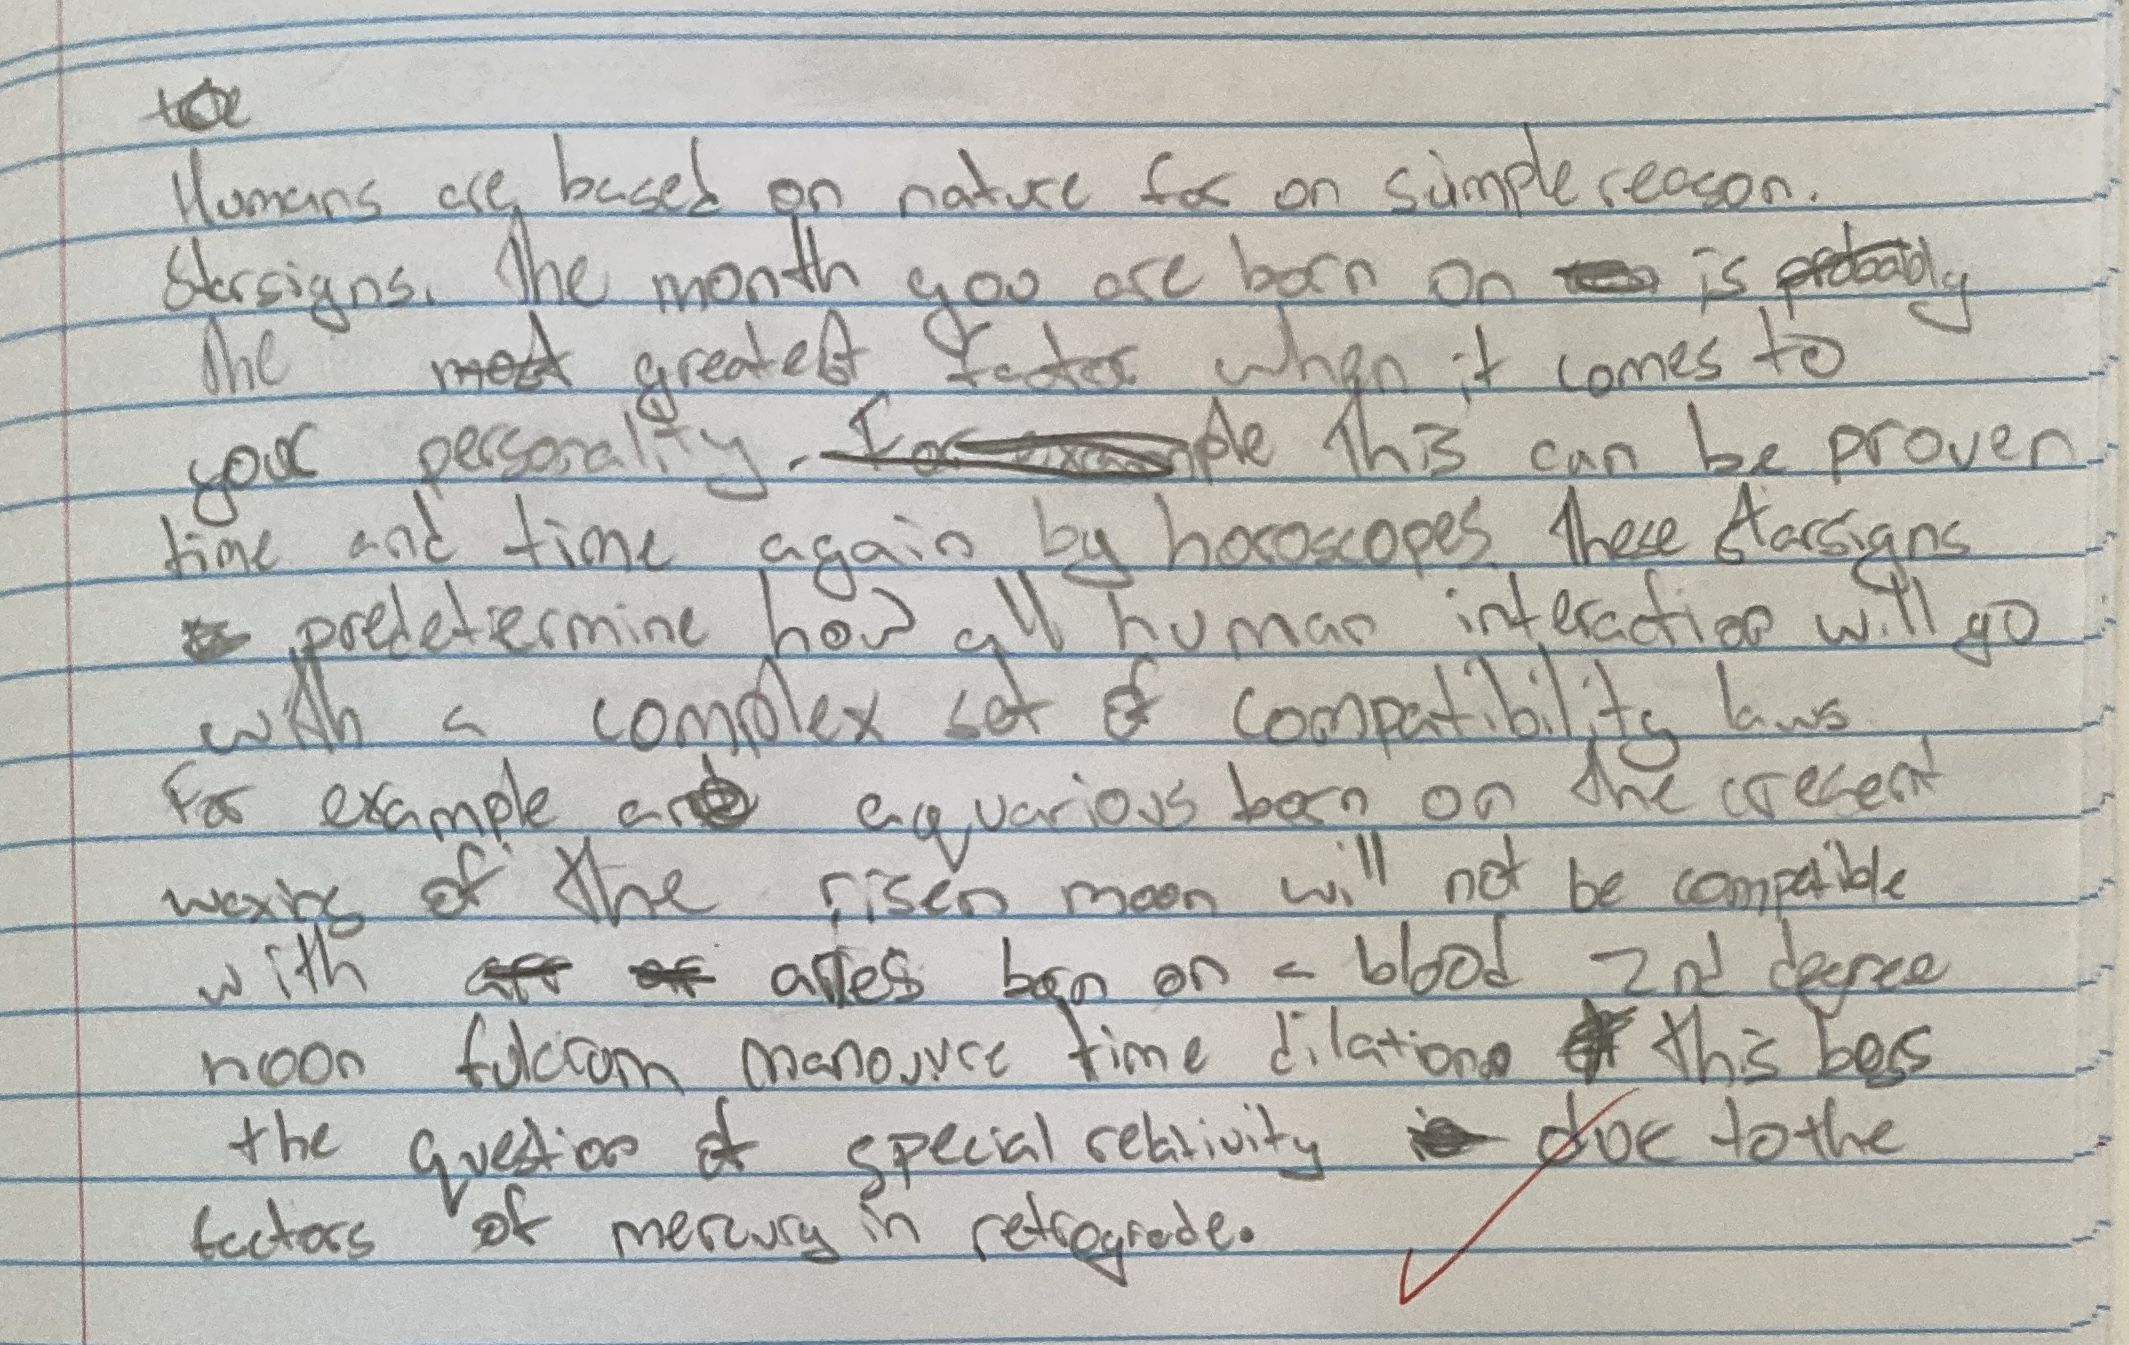 Humans are based on nature for on simple reason.
Starsigns. The month you are born on is probably
the most greatest factor when it comes to
your personality. For example This can be proven
time and time again by horoscopes. These starsigns
predetermine how all human interaction will go
with a complex set of compatibility laws.
For example an aquarious born on the cresent
waxing of the risen moon will not be compatible
with aries born on a blood 2nd degree
noon fulcrom manouvre time dilation this begs
the question of special relativity due to the
factors of mercury in retrograde.